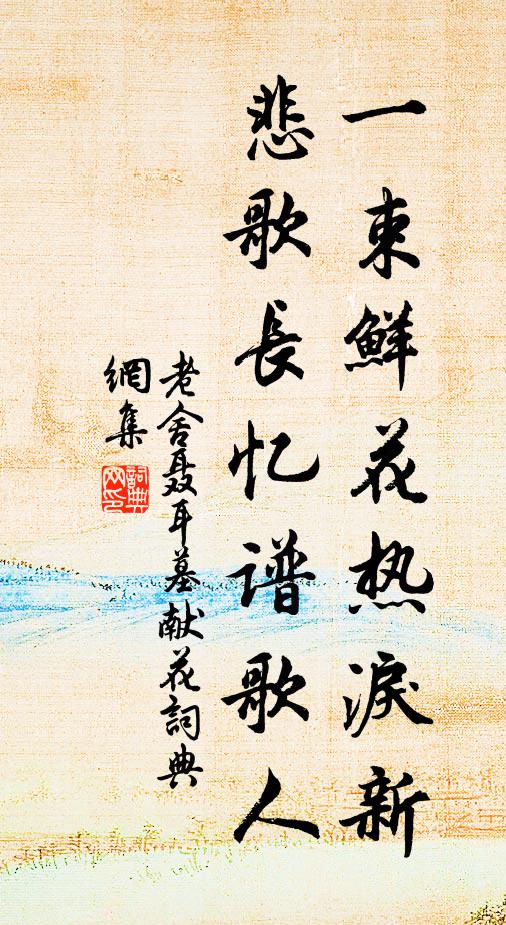 一束鮮花热淚新
悲歌長忆谱歌人
老舍聂耳墓献花詞典
網集
詞典
网印